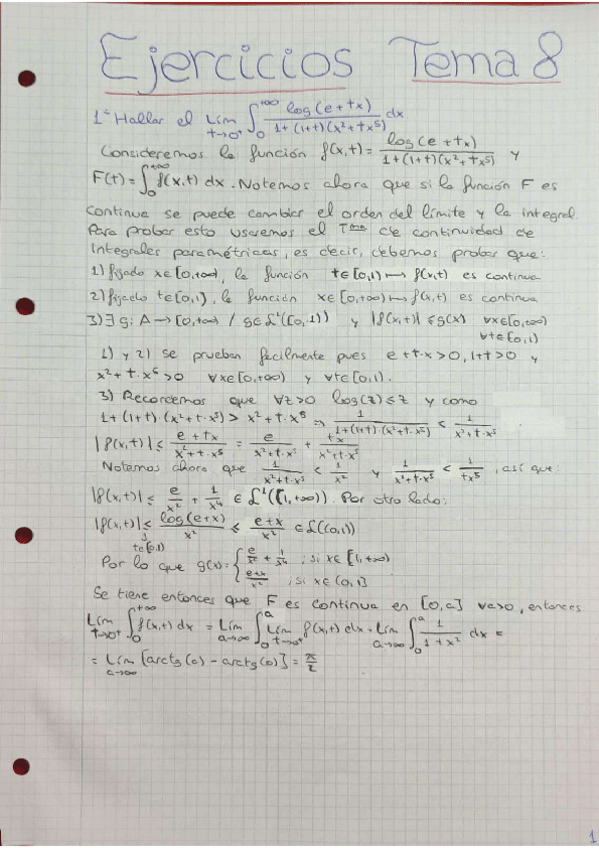 Ejercicios Tema 8
1º Hallar el Lim t→0⁺ ∫₀^{+∞} log(e+tx)/(1+(1+t)(x²+tx⁵)) dx
Consideremos la función f(x,t) = log(e+tx)/(1+(1+t)(x²+tx⁵)) y
F(t) = ∫₀^{+∞} f(x,t) dx. Notemos ahora que si la función F es
continua se puede cambiar el orden del límite y la integral.
Para probar esto usaremos el Tma de continuidad de
integrales paramétricas, es decir, debemos probar que:
1) fijado x∈[0,+∞), la función t∈[0,1) ⟼ f(x,t) es continua
2) fijado t∈[0,1), la función x∈[0,+∞) ⟼ f(x,t) es continua
3) ∃ g: A → [0,+∞) / g∈L¹([0,1)) y |f(x,t)| ≤ g(x) ∀x∈[0,+∞)
∀t∈[0,1)
1) y 2) se prueban fácilmente pues e+t·x>0, 1+t>0 y
x²+t·x⁵>0 ∀x∈[0,+∞) y ∀t∈[0,1).
3) Recordemos que ∀z>0 log(z)≤z y como
1+(1+t)·(x²+t·x⁵) > x²+t·x⁵ ⇒ 1/(1+(1+t)·(x²+t·x⁵)) < 1/(x²+t·x⁵)
|f(x,t)| ≤ (e+tx)/(x²+t·x⁵) = e/(x²+t·x⁵) + tx/(x²+t·x⁵)
Notemos ahora que 1/(x²+t·x⁵) < 1/x² y 1/(x²+t·x⁵) < 1/(tx⁵), así que:
|f(x,t)| ≤ e/x² + 1/x⁴ ∈ L¹([1,+∞)). Por otro lado:
|f(x,t)| ≤ log(e+x)/x² ≤ (e+x)/x² ∈ L((0,1))
t∈[0,1)
Por lo que g(x) = { e/x² + 1/x⁴ ; si x∈[1,+∞)
(e+x)/x² ; si x∈(0,1]
Se tiene entonces que F es continua en [0,a] ∀a>0, entonces
Lim t→0⁺ ∫₀^{+∞} f(x,t) dx = Lim a→∞ ∫₀^a Lim t→0⁺ f(x,t) dx = Lim a→∞ ∫₀^a 1/(1+x²) dx =
= Lim a→∞ [arctg(a) - arctg(0)] = π/2
1